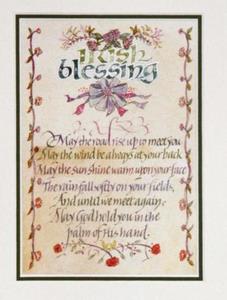 irish
blessing
May the road rise up to meet you
May the wind be always at your back
May the sun shine warm upon your face
The rain fall softly on your fields,
And until we meet again,
May God hold you in the
palm of His hand.